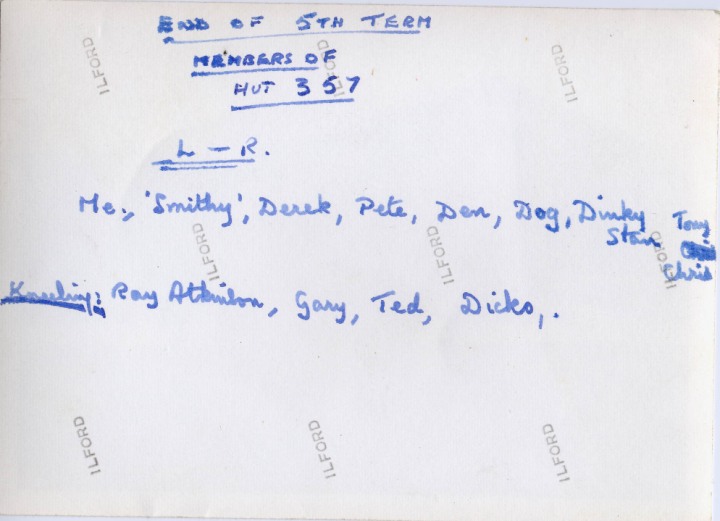 END OF 5TH TERM
MEMBERS OF
HUT 357
L – R.
Me, 'Smithy', Derek, Pete, Den, Dog, Dinky Tony
Stan
Chris
Kneeling: Ray Atkinson, Gary, Ted, Dicko,.
ILFORD
ILFORD
ILFORD
ILFORD
ILFORD
ILFORD
ILFORD
ILFORD
ILFORD